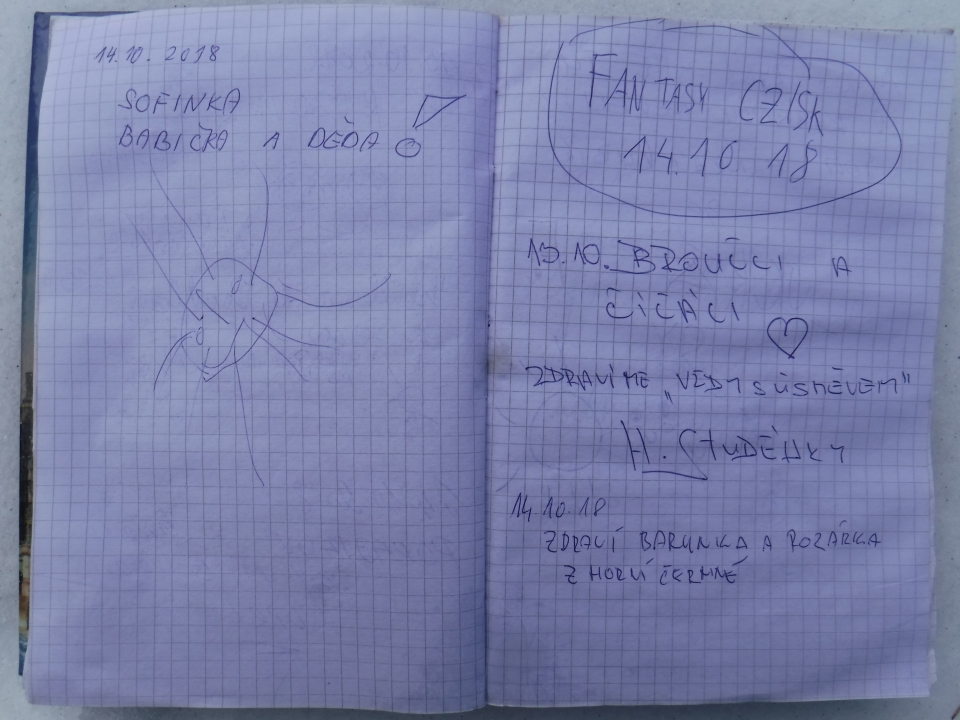 14.10. 2018
SOFINKA
BABIČKA A DĚDA
FANTASY CZ/SK
14.10 18
13.10. BROUČCI A
ČÍČÁCI
ZDRAVÍME „VŽDY S ÚSMĚVEM"
H. STUDÉNKY
14.10.18
ZDRAVÍ BARUNKA A ROZÁRKA
Z HORNÍ ČERMNÉ